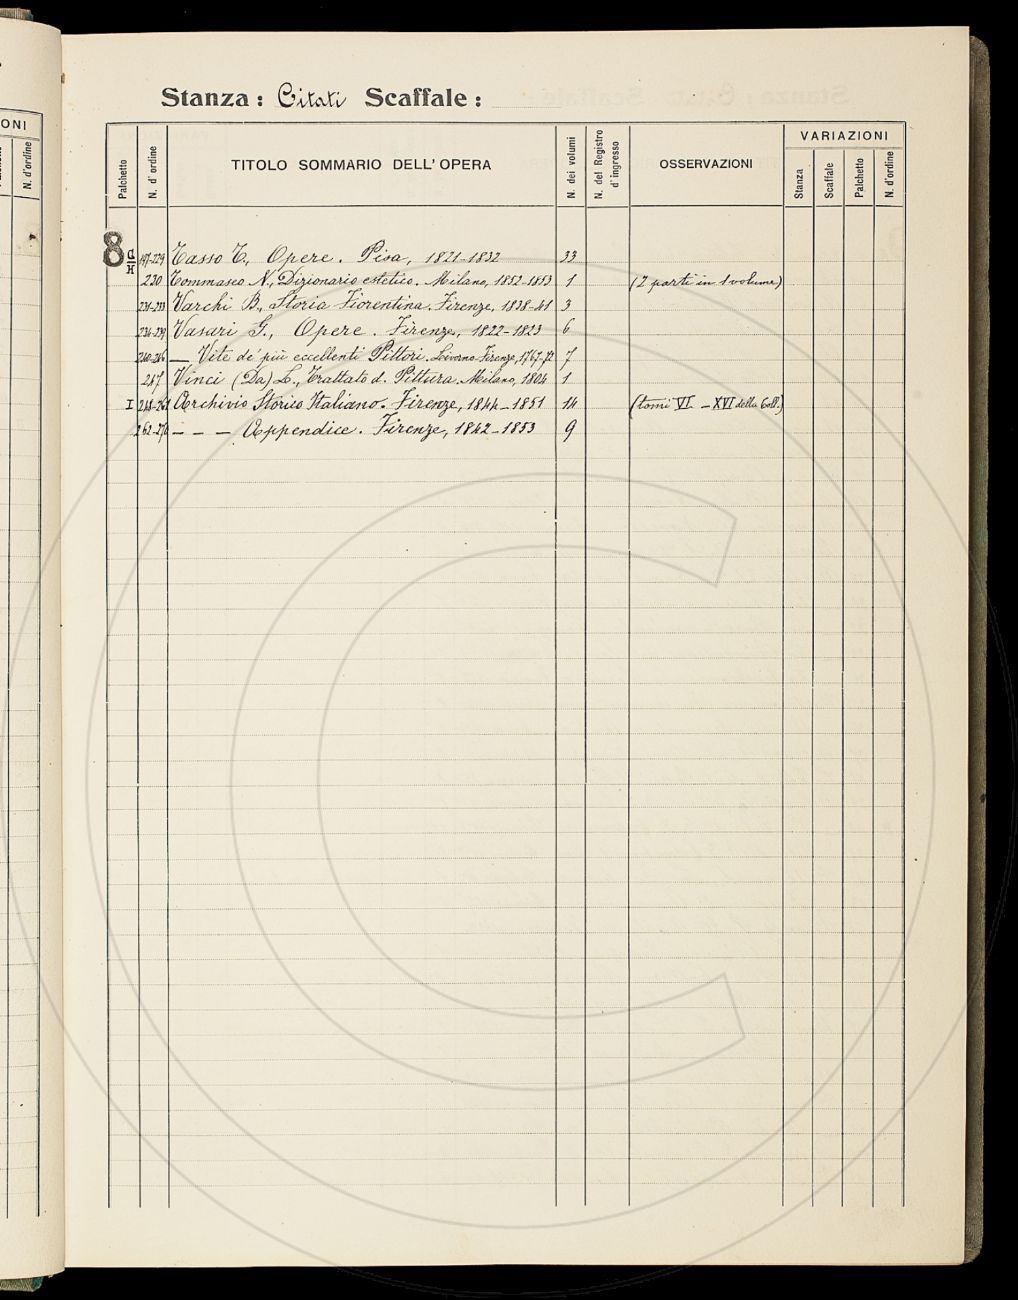 ONI
N. d'ordine
Stanza: Citati Scaffale:
Palchetto N. d'ordine TITOLO SOMMARIO DELL'OPERA N. dei volumi N. del Registro d'ingresso OSSERVAZIONI VARIAZIONI
Stanza Scaffale Palchetto N. d'ordine
8 G/H 197-229 Tasso T., Opere. Pisa, 1821-1832 33
230 Tommaseo N., Dizionario estetico. Milano, 1852-1853 1 (2 parti in 1 volume)
231-233 Varchi B., Storia Fiorentina. Firenze, 1838-41 3
234-239 Vasari G., Opere. Firenze, 1822-1823 6
240-246 — Vite de' più eccellenti Pittori. Livorno-Firenze, 1767-72 7
247 Vinci (Da) L., Trattato d. Pittura. Milano, 1804 1
I 248-261 Archivio Storico Italiano. Firenze, 1844-1851 14 (tomi VI - XVI della Coll.)
262-270 - - - Appendice. Firenze, 1842-1853 9